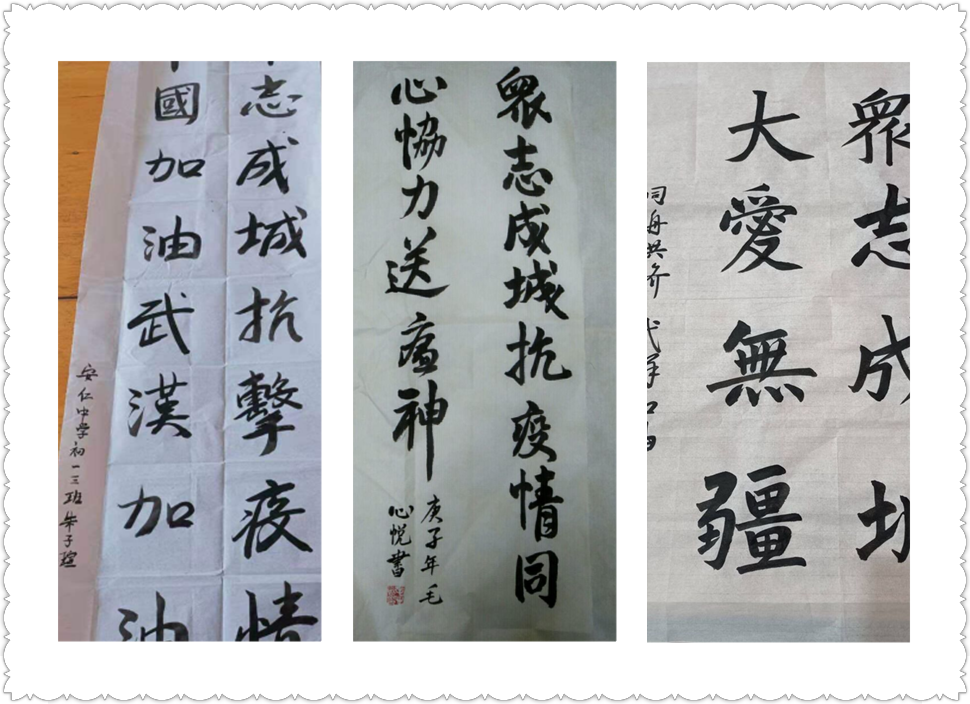 志成城抗擊疫情
國加油武漢加油
安仁中学初一三班朱子瑄
衆志成城抗疫情同
心協力送瘟神
庚子年毛
心悦書
衆志成城
大愛無疆
同舟共济